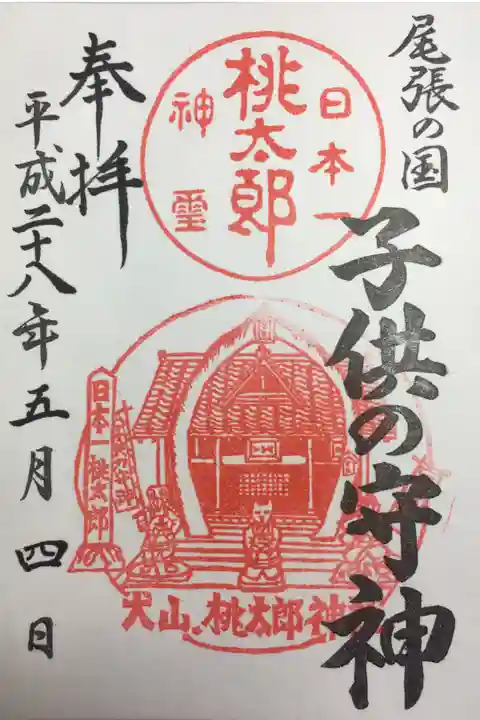 尾張の国
子供の守神
日本一
桃太郎
神霊
日本一桃太郎
犬山、桃太郎神
奉拝
平成二十八年五月四日